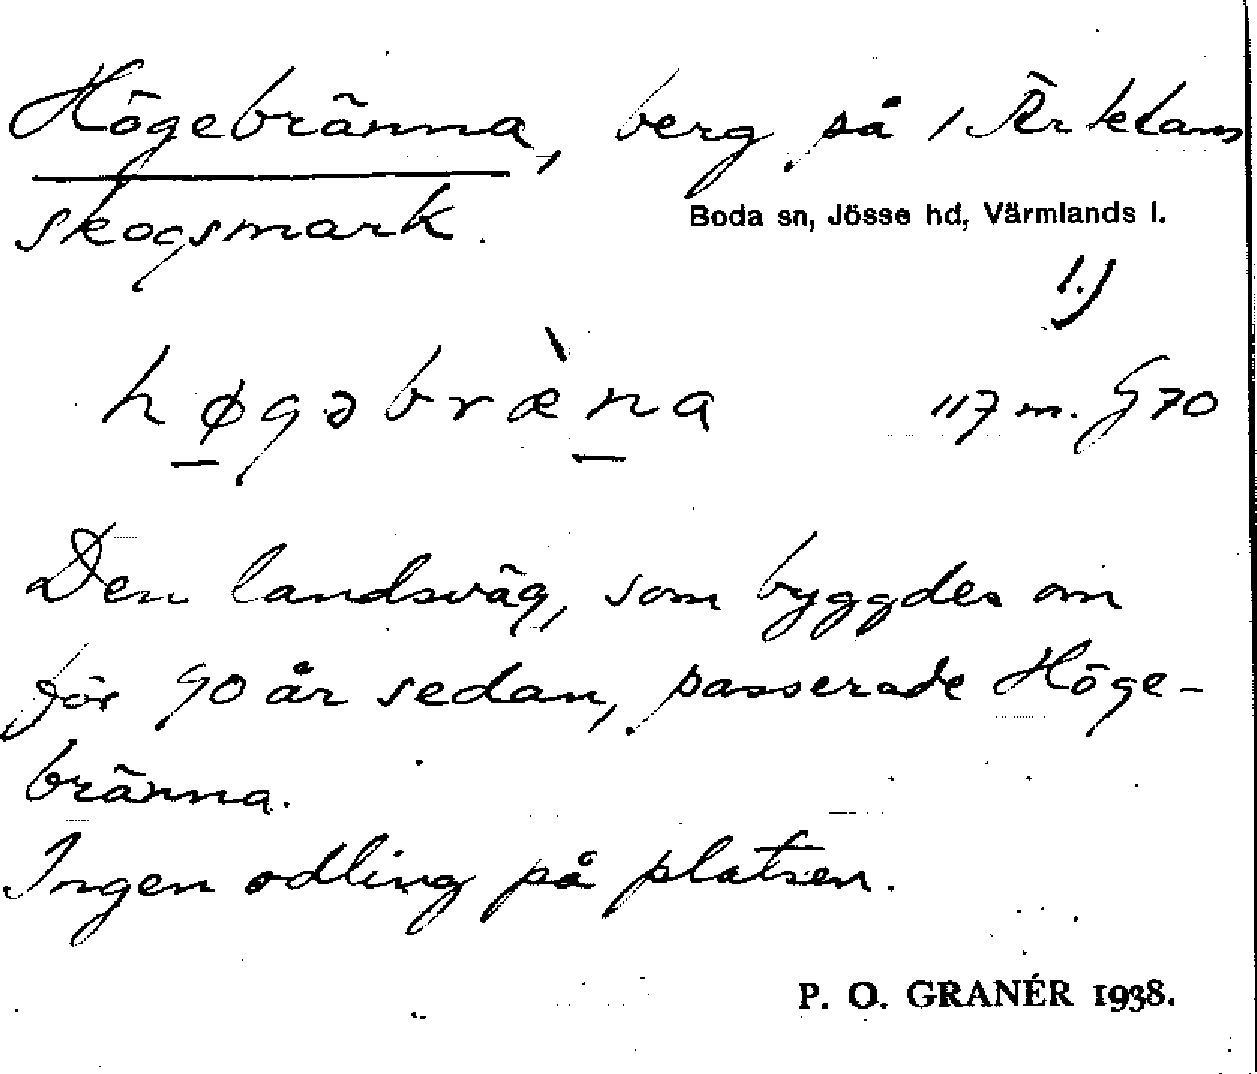 Högebränna, berg på 1 Ärktans
skogsmark.
Boda sn, Jösse hd, Värmlands l.
1.)
høgəbræ̀na 117 m. G70
Den landsväg, som byggdes om
för 90 år sedan, passerade Höge-
bränna.
Ingen odling på platsen.
P. O. GRANÉR 1938.